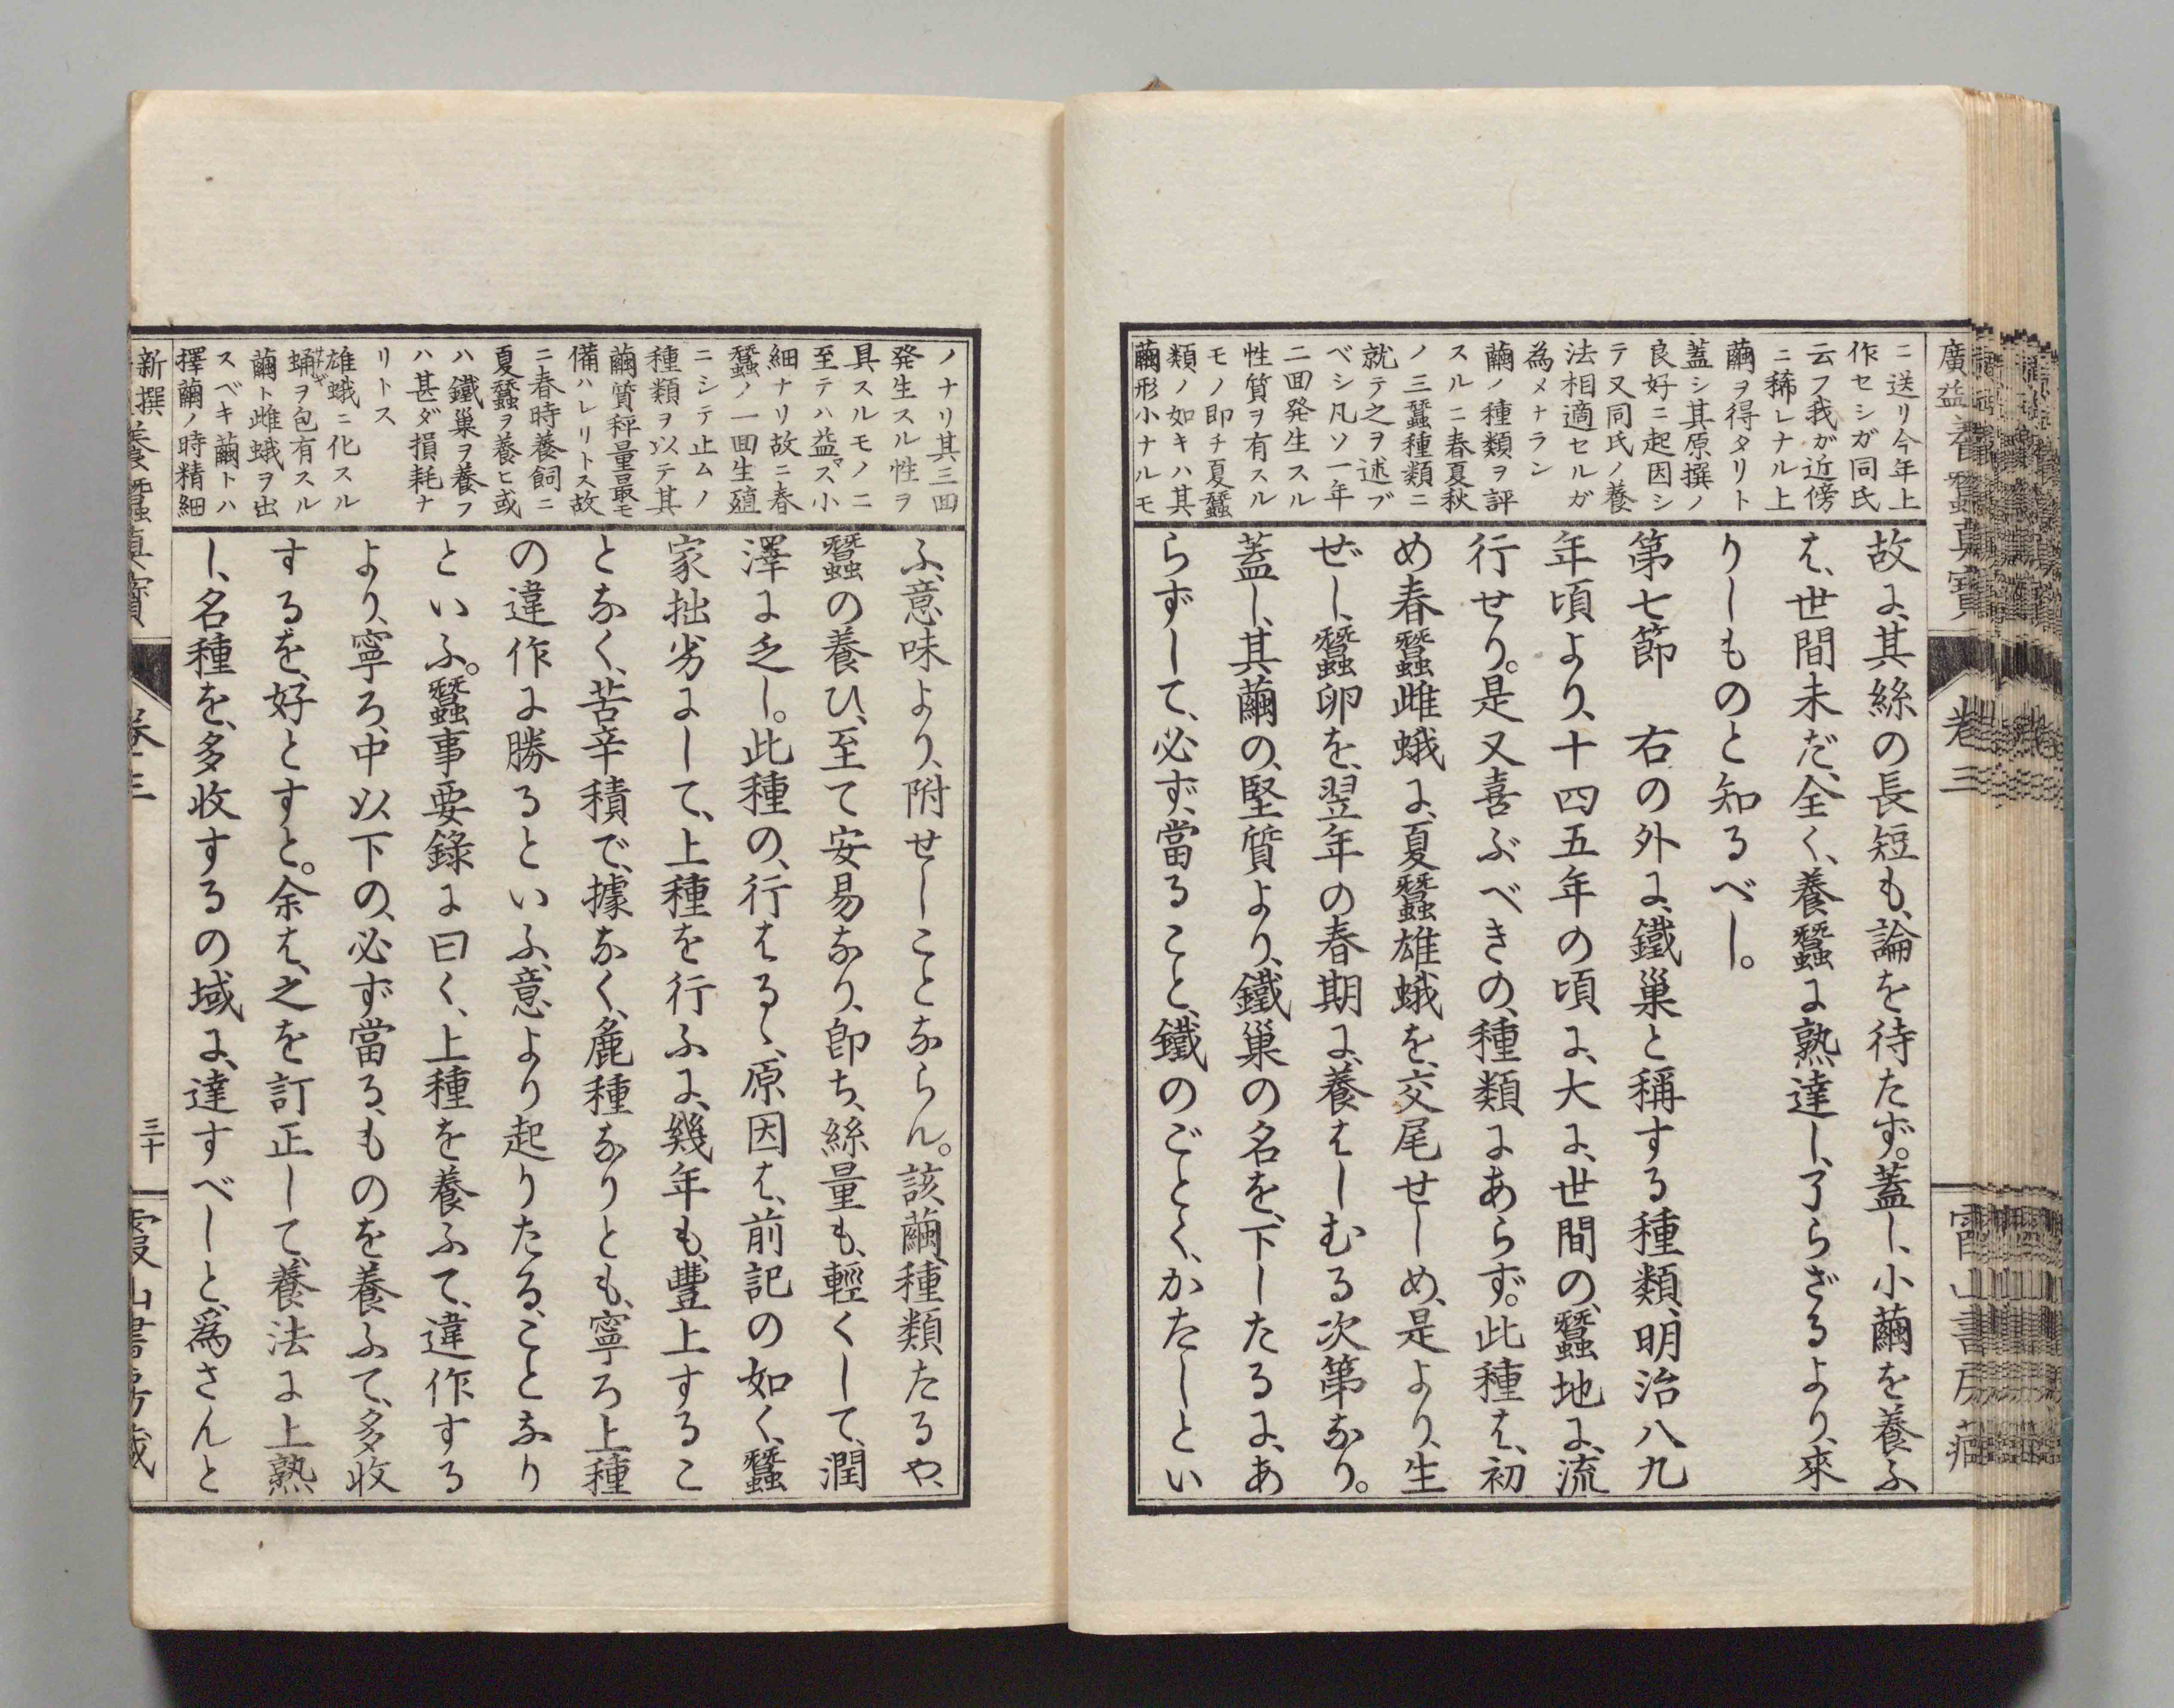 廣益養蠶眞寶
卷三
霞山書房藏
ニ送リ今年上
作セシガ同氏
云フ我ガ近傍
ニ稀レナル上
繭ヲ得タリト
蓋シ其原撰ノ
良好ニ起因シ
テ又同氏ノ養
法相適セルガ
為メナラン
繭ノ種類ヲ評
スルニ春夏秋
ノ三蠶種類ニ
就テ之ヲ述ブ
ベシ凡ソ一年
二回発生スル
性質ヲ有スル
モノ即チ夏蠶
類ノ如キハ其
繭形小ナルモ
故に、其絲の長短も、論を待たず。蓋し、小繭を養ふ
は、世間未だ、全く、養蠶に熟達し、了らざるより、來
りしものと知るべし。
第七節　右の外に、鐵巢と稱する種類、明治八九
年頃より、十四五年の頃に、大に、世間の、蠶地に、流
行せり。是又喜ぶべきの、種類にあらず。此種は、初
め春蠶雌蛾に、夏蠶雄蛾を、交尾せしめ、是より、生
ぜし、蠶卵を、翌年の春期に、養はしむる次第なり。
蓋し、其繭の、堅質より、鐵巢の名を、下したるに、あ
らずして、必ず、當ること、鐵のごとく、かたしとい
ノナリ其三四
発生スル性ヲ
具スルモノニ
至テハ益マス小
細ナリ故ニ春
蠶ノ一回生殖
ニシテ止ムノ
種類ヲ以テ其
繭質秤量最モ
備ハレリトス故
ニ春時養飼ニ
夏蠶ヲ養ヒ或
ハ鐵巢ヲ養フ
ハ甚ダ損耗ナ
リトス
雄蛾ニ化スル
蛹サナギヲ包有スル
繭ト雌蛾ヲ出
スベキ繭トハ
擇繭ノ時精細
ふ、意味より、附せしことならん。該繭、種類たるや、
蠶の養ひ、至て安易なり、即ち、絲量も、輕くして、潤
澤に乏し。此種の、行はるゝ、原因は、前記の如く、蠶
家拙劣にして、上種を行ふに、幾年も、豐上するこ
となく、苦辛積で、據なく、麁種なりとも、寧ろ上種
の違作に勝るといふ、意より起りたる、ことなり
といふ。蠶事要錄に曰く、上種を養ふて、違作する
より、寧ろ、中以下の、必ず當る、ものを養ふて、多收
するを、好とすと。余は、之を訂正して、養法に上熟
し、名種を、多收するの域に、達すべしと、爲さんと
新撰養蠶眞寶
卷三
三十
霞山書房藏